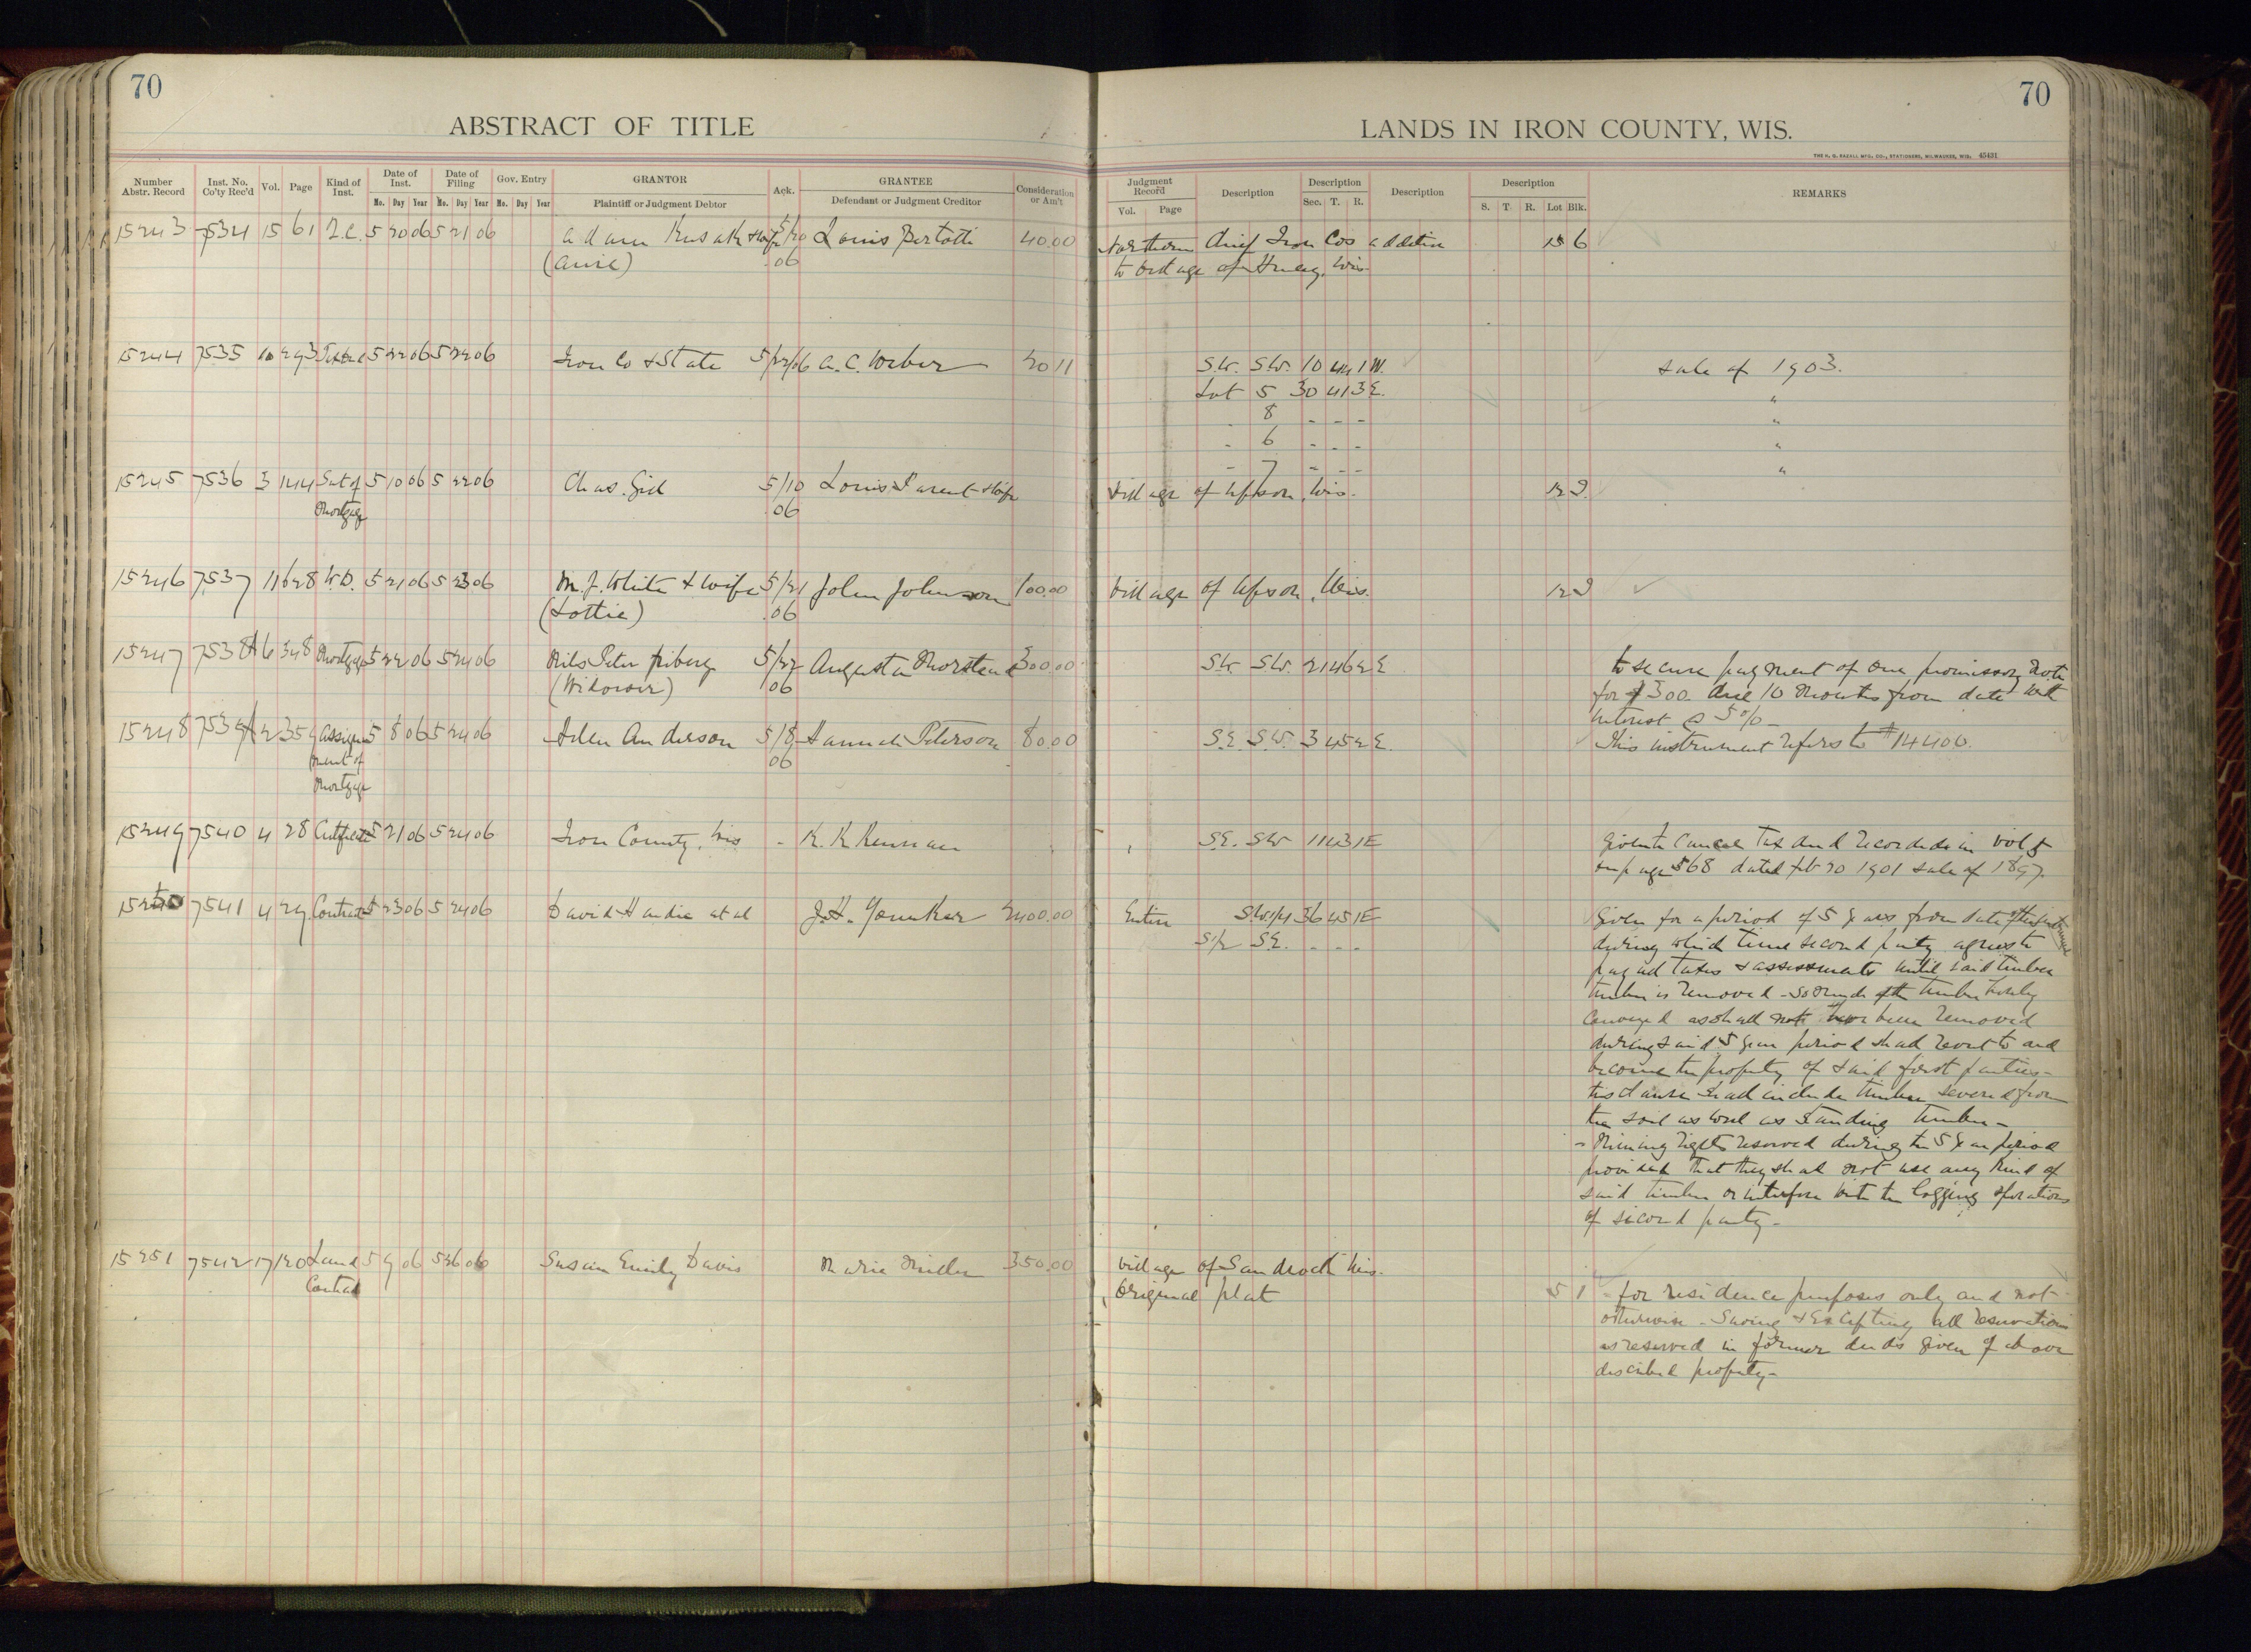 70
ABSTRACT OF TITLE
Number Abstr. Record
Inst. No. Co'ty Rec'd
Vol.
Page
Kind of Inst.
Date of Inst.
Mo. Day Year
Date of Filing
Mo. Day Year
Gov. Entry
Mo. Day Year
GRANTOR
Plaintiff or Judgment Debtor
Ack.
GRANTEE
Defendant or Judgment Creditor
Consideration or Am't
15243 7534 15 61 5 20 06 5 21 06 Adam Kusak & wife 5/20 Louis Bertotti 40.00
06
15244 7535 10 293 5 22 06 5 22 06 Iron Co & State 5/22/06 A. C. Weber 20 11
15245 7536 3 144 Sat of 5 10 06 5 22 06 Chas. 5/10 Louis Parent & wife
Mortgage 06
15246 7537 11 628 W.D. 5 21 06 5 23 06 M. J. White & wife 5/21 John Johnson 100.00
(Lottie) 06
15247 7538 6 348 Mortgage 5 22 06 5 24 06 Nils Peter Friberg 5/22 Augusta 300.00
(Widower) 06
15248 2 359 Assign 5 8 06 5 24 06 Anderson 5/8 Hannah Peterson 80.00
ment of 06
Mortgage
15249 7540 4 28 Certificate 5 21 06 5 24 06 Iron County, Wis - K. K. Kennan
15250 7541 4 29 Contract 5 23 06 5 24 06 David Handie et al J. H. Younker 2400.00
15251 7542 17 120 Land 5 9 06 5 26 06 Susan Emily Davis Marie Miller 350.00
Contract
70
LANDS IN IRON COUNTY, WIS.
45431
Judgment Record
Vol. Page
Description
Description
Sec. T. R.
Description
Description
S. T. R. Lot Blk.
REMARKS
Northern Chief Iron Cos addition 6
to Village of Hurley, Wis.
S.W. S.W. 10 44 1W. sale of 1903.
Lot 5 30 41 3E. "
- 8 - - - "
- 6 - - - "
- 7 - - - "
Village of Upson, Wis. 12
Village of Upson, Wis. 12
S.W. S.W. 21 46 2E to secure payment of one promissory note
for $300. due 10 months from date with
interest @ 5%-
S.E. S.W. 3 45 2E. This instrument refers to #14400.
S.E. S.W. 11 43 1E Given to cancel tax deed recorded in vol 5
on page 568 dated feb 20 1901 sale of 1897.
Entire S.W.1/4 36 45 1E Given for a period of 5 years from date of this instrument
S1/2 S.E. - - - during which time second party agrees to
pay all taxes & assessments until said timber
timber is removed - so much of the timber hereby
conveyed as shall not have been removed
during said 5 year period shall revert to and
become the property of said first parties -
this clause shall include timber severed from
the soil as well as standing timber -
- Mining rights reserved during the 5 year period
provided that they shall not use any kind of
said timber or interfere with the logging operations
of second party -
Village of Sandrock Wis.
Original plat 5 1 - for residence purposes only and not
otherwise - Saving & Excepting all reservations
as reserved in former deeds given of above
described property -